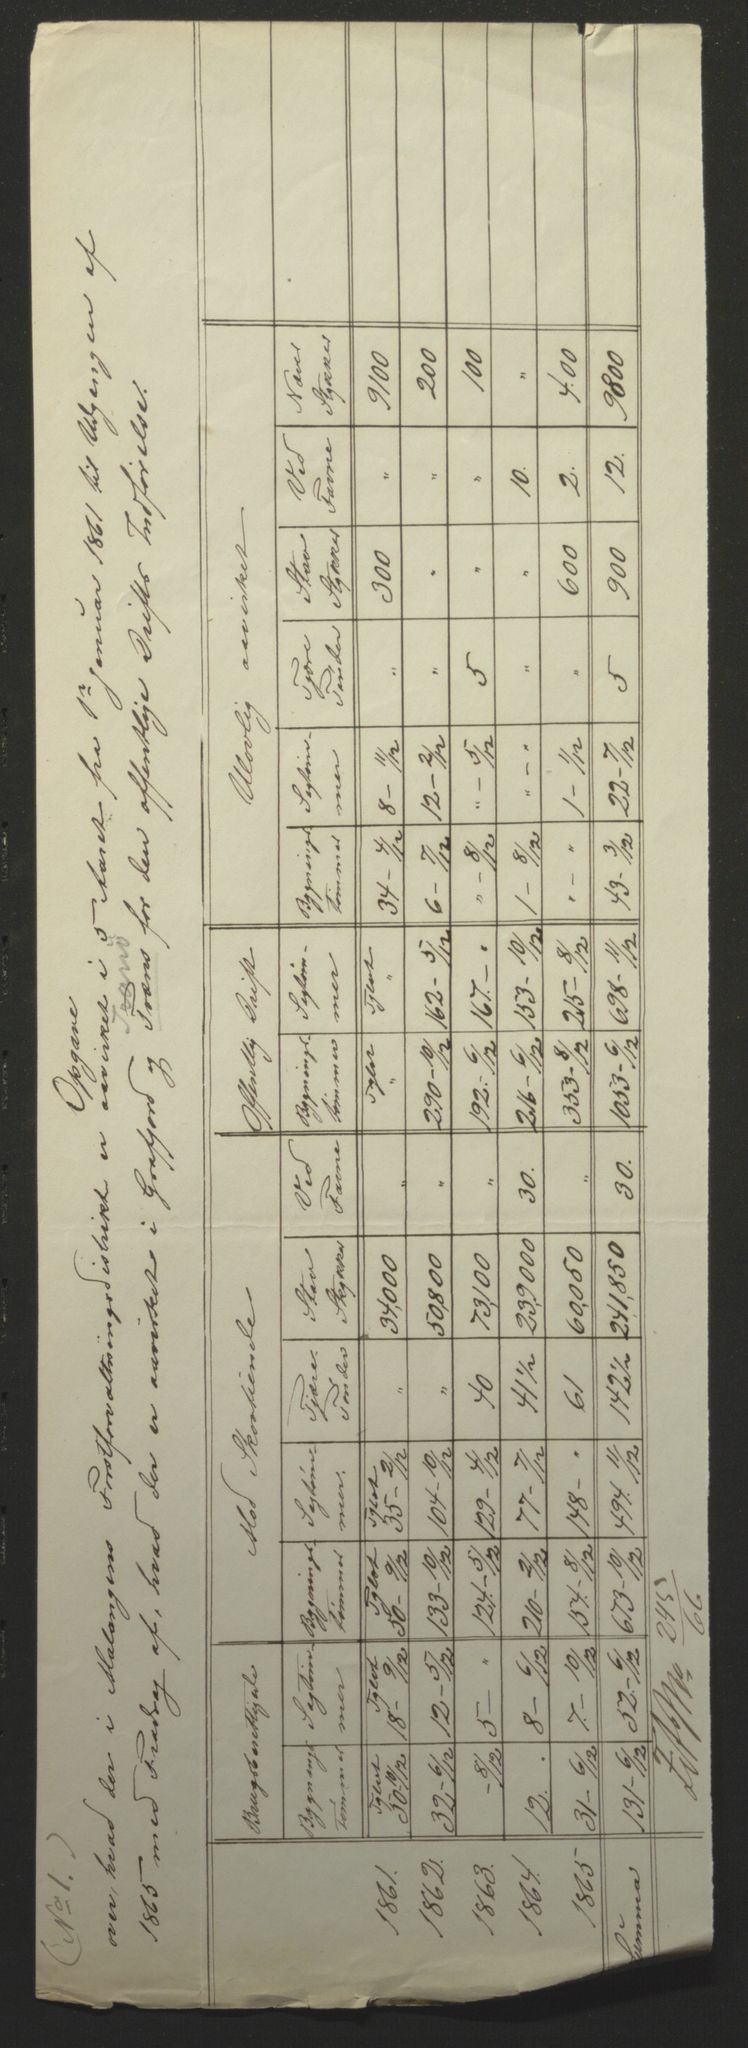 (No 1.)
Opgave
over, hvad der i Malangens Forstforvaltningsdistrikt er avvirket i 5 Aaret fra 1ste Januar 1861 til Udgangen af
1865 med Fradrag af, hvad der er avvirket i Gratfjord og Tranø for den offentlige Drifts Indførelse.
Tranø
Brugsberettigede | Mod Skovtiende | Offentlig Drift | Ulovlig avvirket
Bygningstømmer | Sagtømmer | Bygningstømmer | Sagtømmer | Tjære Tønder | Stav Stykker | Ved Favne | Bygningstømmer | Sagtømmer | Bygningstømmer | Sagtømmer | Tjære Tønder | Stav Stykker | Ved Favne | Næver Stykker
1861. | Tylvt 50-10/12 | Tylvt 18-9/12 | Tylvt 50-9/12 | Tylvt 35-2/12 | " | 34,000 | " | Tylvt " | Tylvt " | 34-4/12 | 8-11/12 | " | 300 | " | 9100
1862. | 32-6/12 | 12-5/12 | 133-10/12 | 104-10/12 | " | 50,800 | " | 290-10/12 | 162-5/12 | 6-7/12 | 12-2/12 | " | " | " | 200
1863. | -8/12 | 5-" | 124-5/12 | 129-4/12 | 40 | 73,100 | " | 192-6/12 | 167-" | "-8/12 | "-5/12 | 5 | " | " | 100
1864. | 12. " | 8-6/12 | 210-2/12 | 77-7/12 | 41½ | 23,9000 | 30. | 216-6/12 | 153-10/12 | 1-8/12 | "-" | " | " | 10. | "
1865 | 31-6/12 | 7-10/12 | 154-8/12 | 148-" | 61 | 60,050 | " | 353-8/12 | 215-8/12 | "-" | 1-1/12 | " | 600 | 2. | 400
Summa | 131-6/12 | 52-6/12 | 673-10/12 | 494-11/12 | 142½ | 241,850 | 30. | 1053-6/12 | 698-11/12 | 43-3/12 | 22-7/12 | 5 | 900 | 12. | 9800
245/66